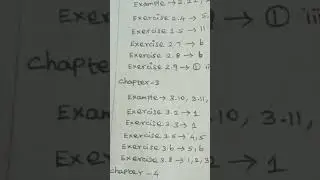 Example → 2.2
Exercise 2.4 →
Exercise 2.5 → 11
Exercise 2.7 → 6
Exercise 2.8 → 6
Exercise 2.9 → ① iii
Chapter-3
Example → 3.10, 3.11,
Exercise 3.2 → 1
Exercise 3.3 → 1
Exercise 3.5 → 4,5
Exercise 3.6 → 5,6
Exercise 3.8 → 1,2,3
Chapter-4